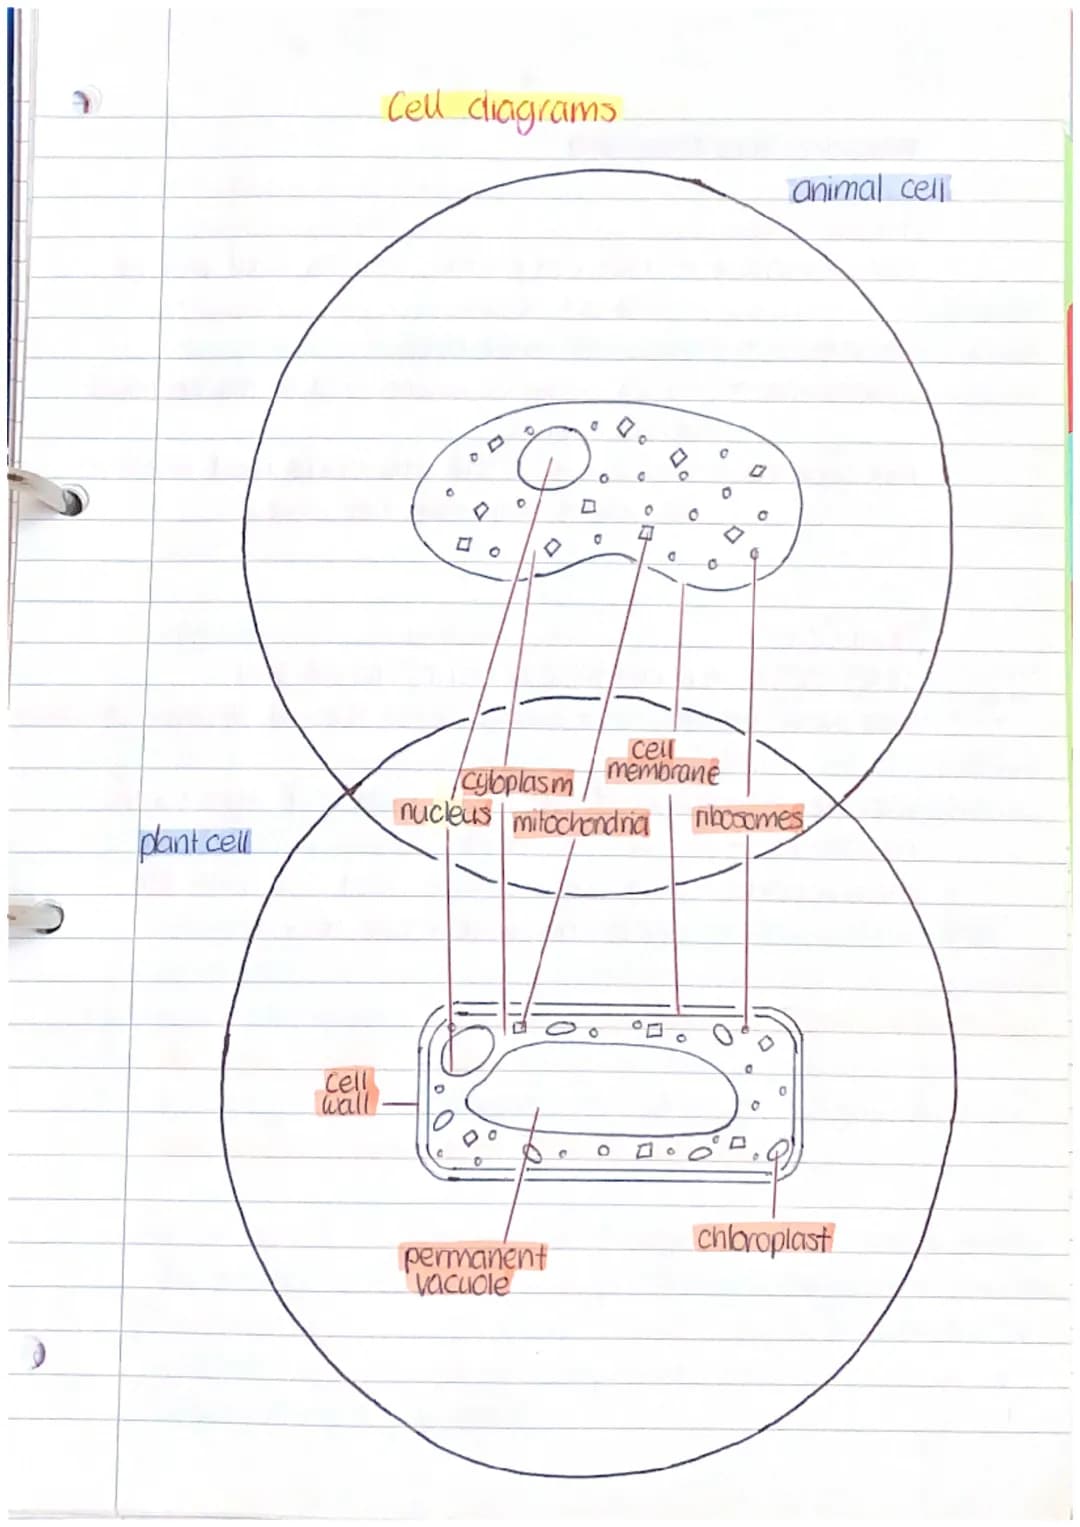 Cell diagrams
animal cell
cell
membrane
cytoplasm
nucleus
mitochondria
ribosomes
plant cell
cell
wall
permanent
vacuole
chloroplast